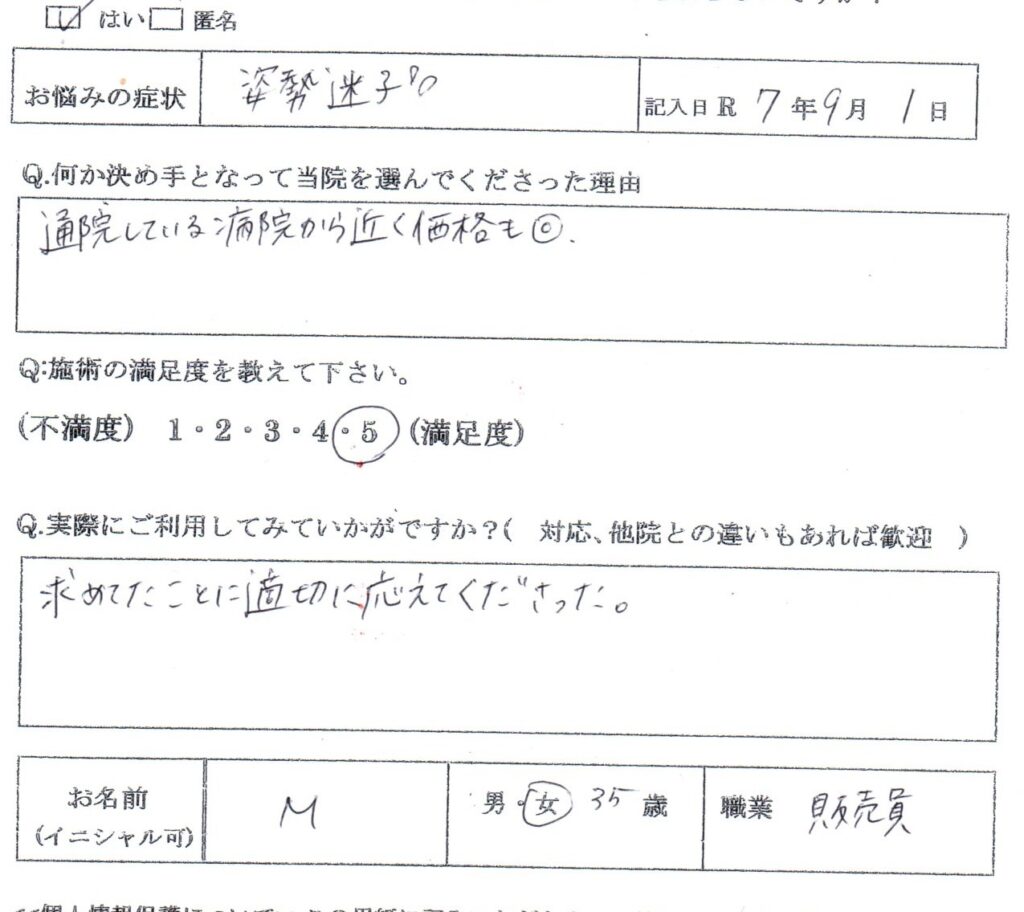 はい 匿名
お悩みの症状 姿勢迷子。 記入日 R 7 年 9 月 1 日
Q.何か決め手となって当院を選んでくださった理由
通院している病院から近く価格も◎.
Q:施術の満足度を教えて下さい。
(不満度) 1・2・3・4・5 (満足度)
Q.実際にご利用してみていかがですか?( 対応、他院との違いもあれば歓迎 )
求めてたことに適切に応えてくださった。
お名前 M 男・女 35 歳 職業 販売員
(イニシャル可)